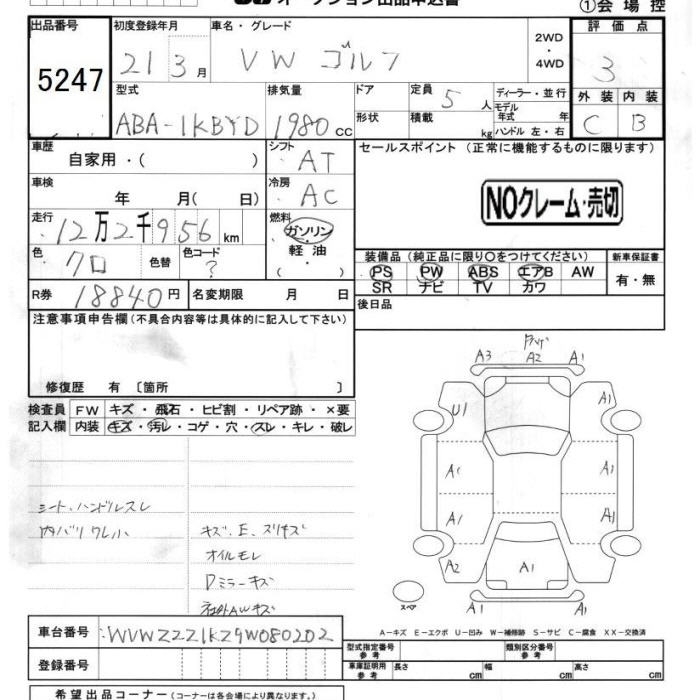 オークション出品申込書
①会場控
出品番号 初度登録年月 車名・グレード 2WD・4WD 評価点
5247 21 3月 VW ゴルフ 3
型式 排気量 ドア 定員 5人 ディーラー・並行 外装 内装
ABA-1KBYD 1980 CC 形状 積載 kg モデル年式 年 ハンドル 左・右 C B
車歴 自家用・( ) シフト AT セールスポイント (正常に機能するものに限ります)
車検 年 月( 日) 冷房 AC
NOクレーム・売切
走行 12万2千956km 燃料 ガソリン・軽油
色 クロ 色替 色コード ?
装備品 (純正品に限り○をつけてください) 新車保証書
PS PW ABS エアB AW 有・無
SR ナビ TV カワ
R券 18840円 名変期限 月 日 後日品
注意事項申告欄 (不具合内容等は具体的に記入して下さい)
修復歴 有 〔箇所 〕
検査員 FW キズ・飛石・ヒビ割・リペア跡・×要
記入欄 内装 キズ・汚レ・コゲ・穴・スレ・キレ・破レ
A3 A2 A1
U1 A1
A1 A1
A1 A1
A2 A1
A1 A1
スペア
シート、ハンドルスレ
内バリワレ小 キズ、E、スリキズ
オイルモレ
Dミラーキズ
社外AWキズ
A-キズ E-エクボ U-凹み W-補修跡 S-サビ C-腐食 XX-交換済
車台番号 WVWZZZ1KZ9W080202
登録番号
型式指定番号 参考 類別区分番号 参考
車庫証明用 参考 長さ cm 幅 cm 高さ cm
希望出品コーナー (コーナーは各会場により異なります。)